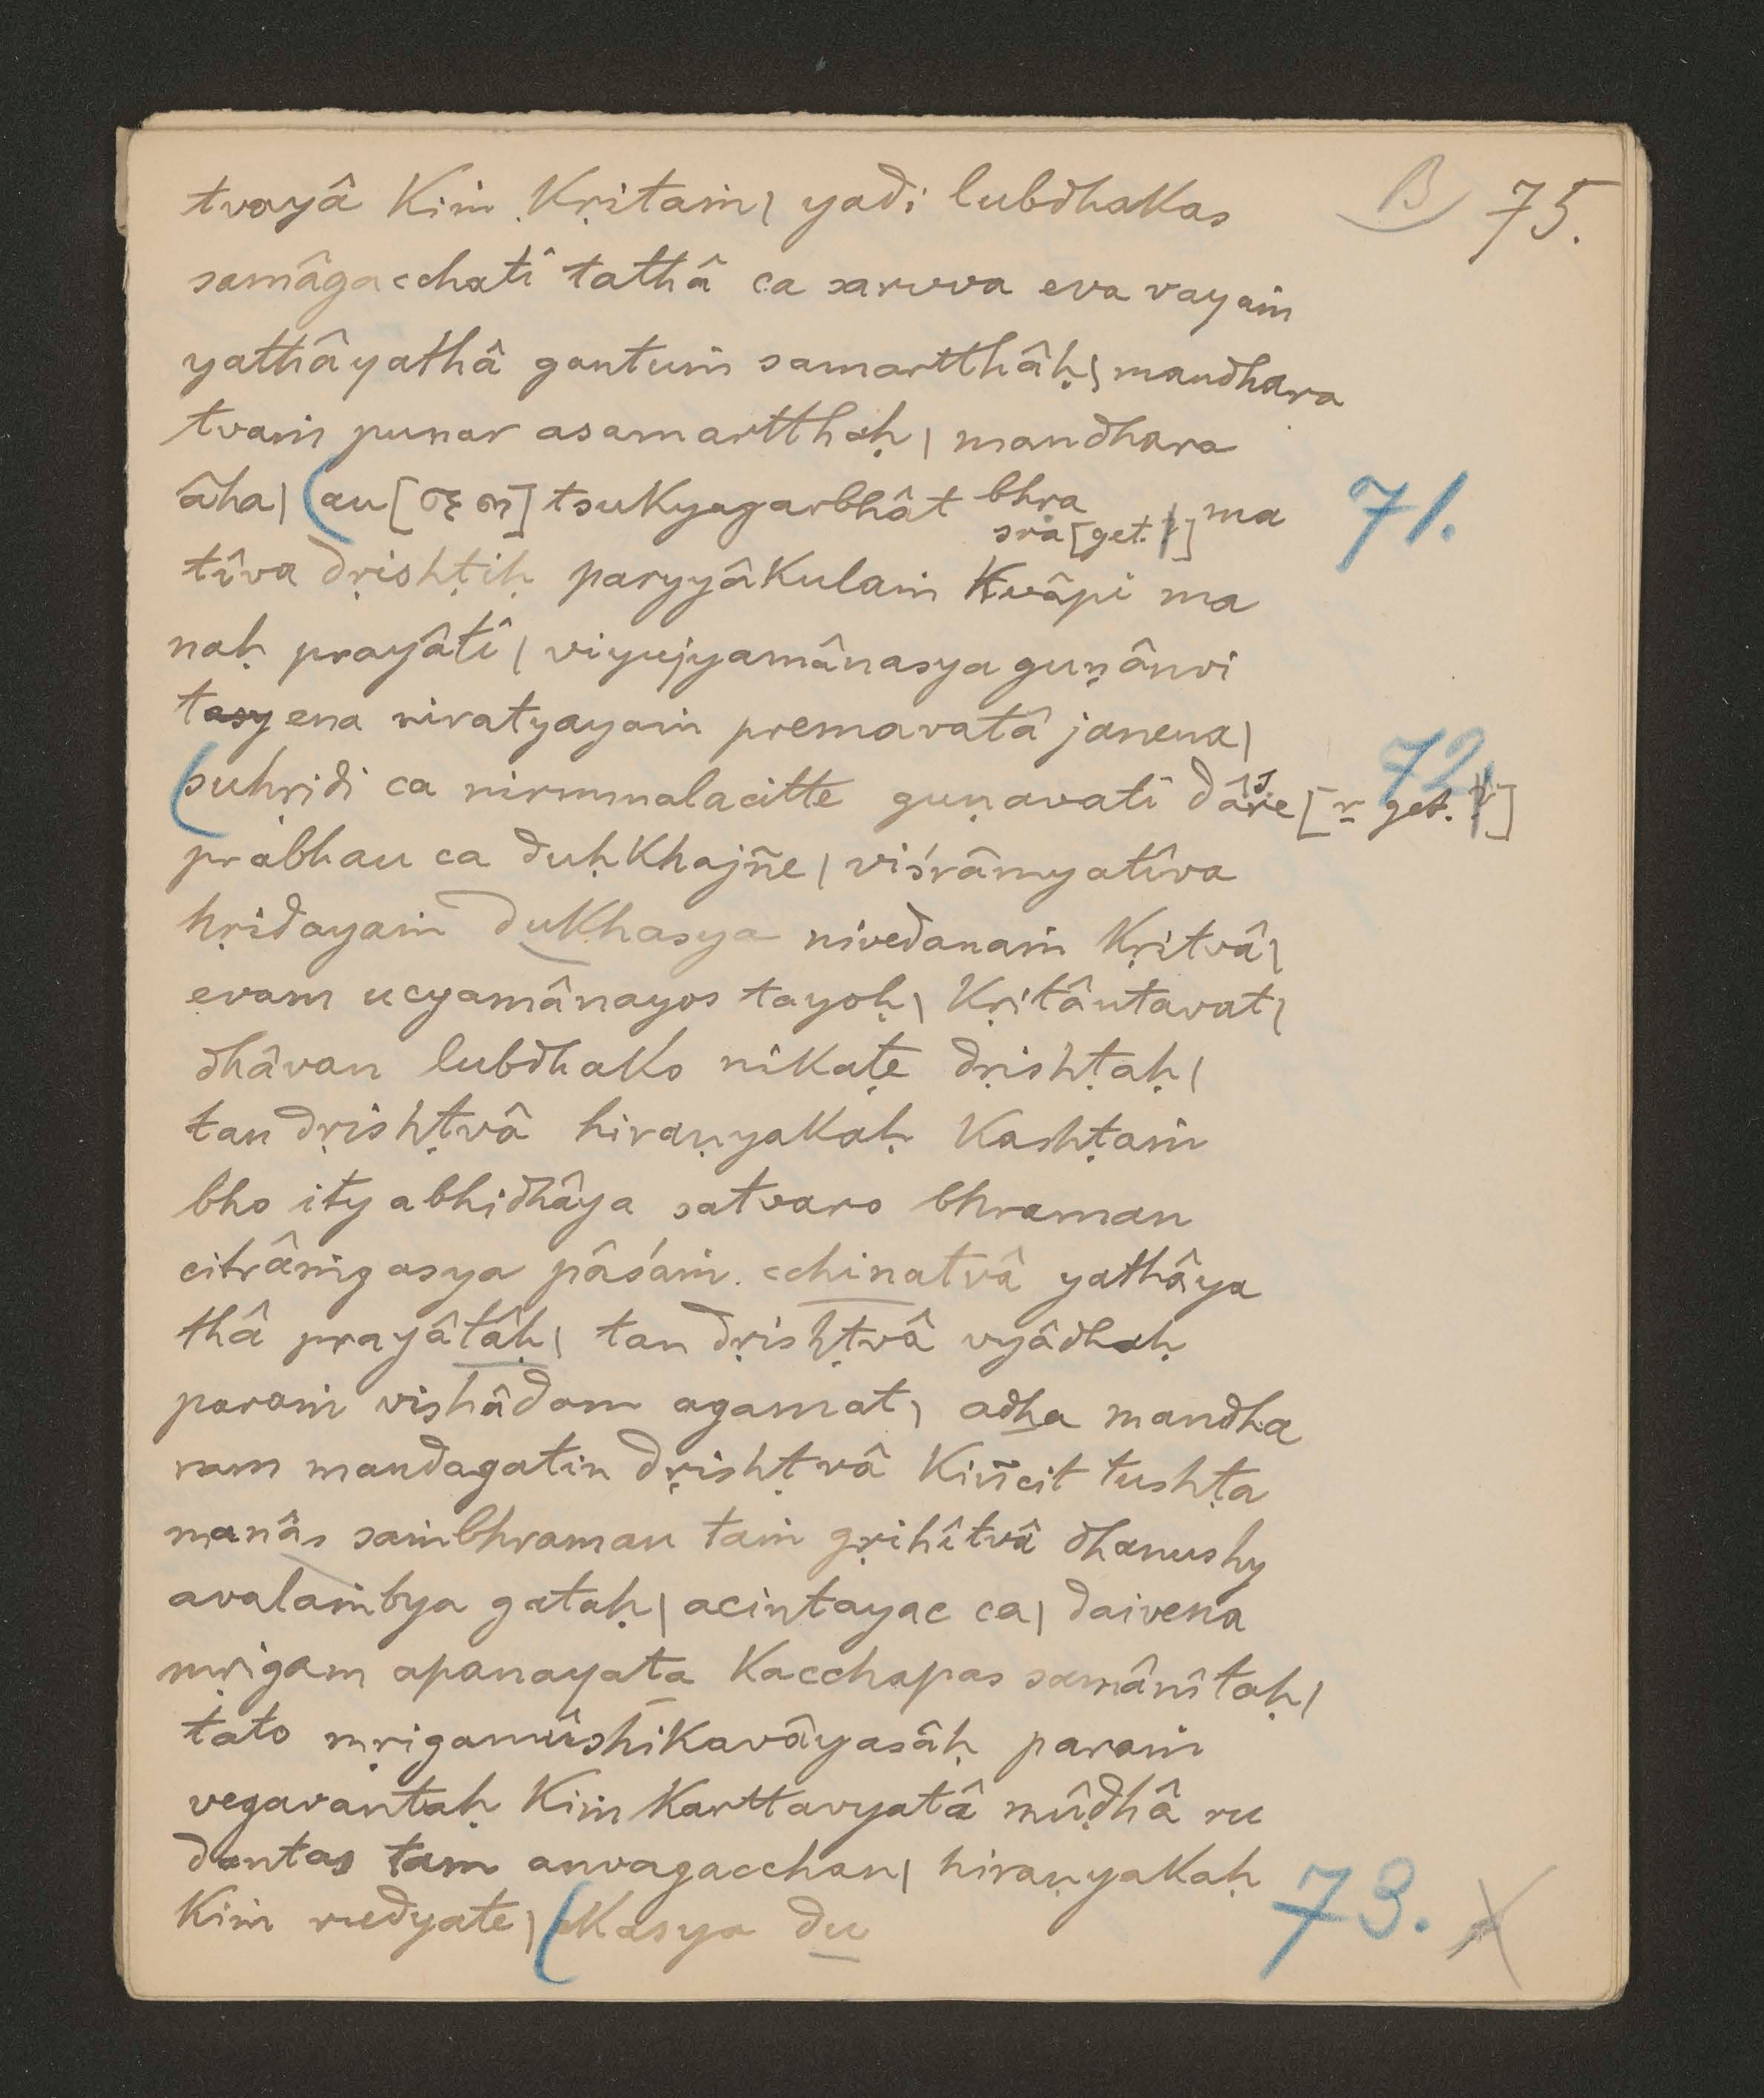 B 75.
tvayâ kiṁ kṛitaṁ| yadi lubdhakas
samâgacchati tathâ ca sarvva eva vayaṁ
yathâyathâ gantuṁ samartthâḥ| mandhara
tvaṁ punar asamartthaḥ| mandhara
âha| (au[ ]tsukyagarbhât bhra sra[get. |] ma 71.
tîva dṛishṭiḥ paryyâkulaṁ kvâpi ma
naḥ prayâti| viyujyamânasya guṇânvi
tasyena niratyayaṁ premavatâ janena|
(suhṛidi ca nirmmalacitte guṇavati dâre [r get. ] 72.
prabhau ca duḥkhajñe| viśrâmyatîva
hṛidayaṁ dukhasya nivedanaṁ kṛitvâ|
evam ucyamânayos tayoḥ| kṛitântavat|
dhâvan lubdhako nikaṭe dṛishṭaḥ|
tan dṛishṭvâ hiraṇyakaḥ kashṭaṁ
bho ity abhidhâya satvaro bhraman
citrâṁgasya pâśaṁ cchinatvâ yathâya
thâ prayâtâḥ| tan dṛishṭvâ vyâdhaḥ
paraṁ vishâdam agamat| adha mandha
ram mandagatin dṛishṭvâ kiñcit tushṭa
manâs saṁbhraman taṁ gṛihîtvâ dhanushy
avalaṁbya gataḥ| acintayac ca| daivena
mṛigam apanayata kacchapas samânîtaḥ|
tato mṛigamûshikavâyasâḥ paraṁ
vegavantaḥ kiṁ karttavyatâ mûḍhâ ru
dantas tam anvagacchan| hiraṇyakaḥ
kiṁ rudyate| (kasya du 73. X